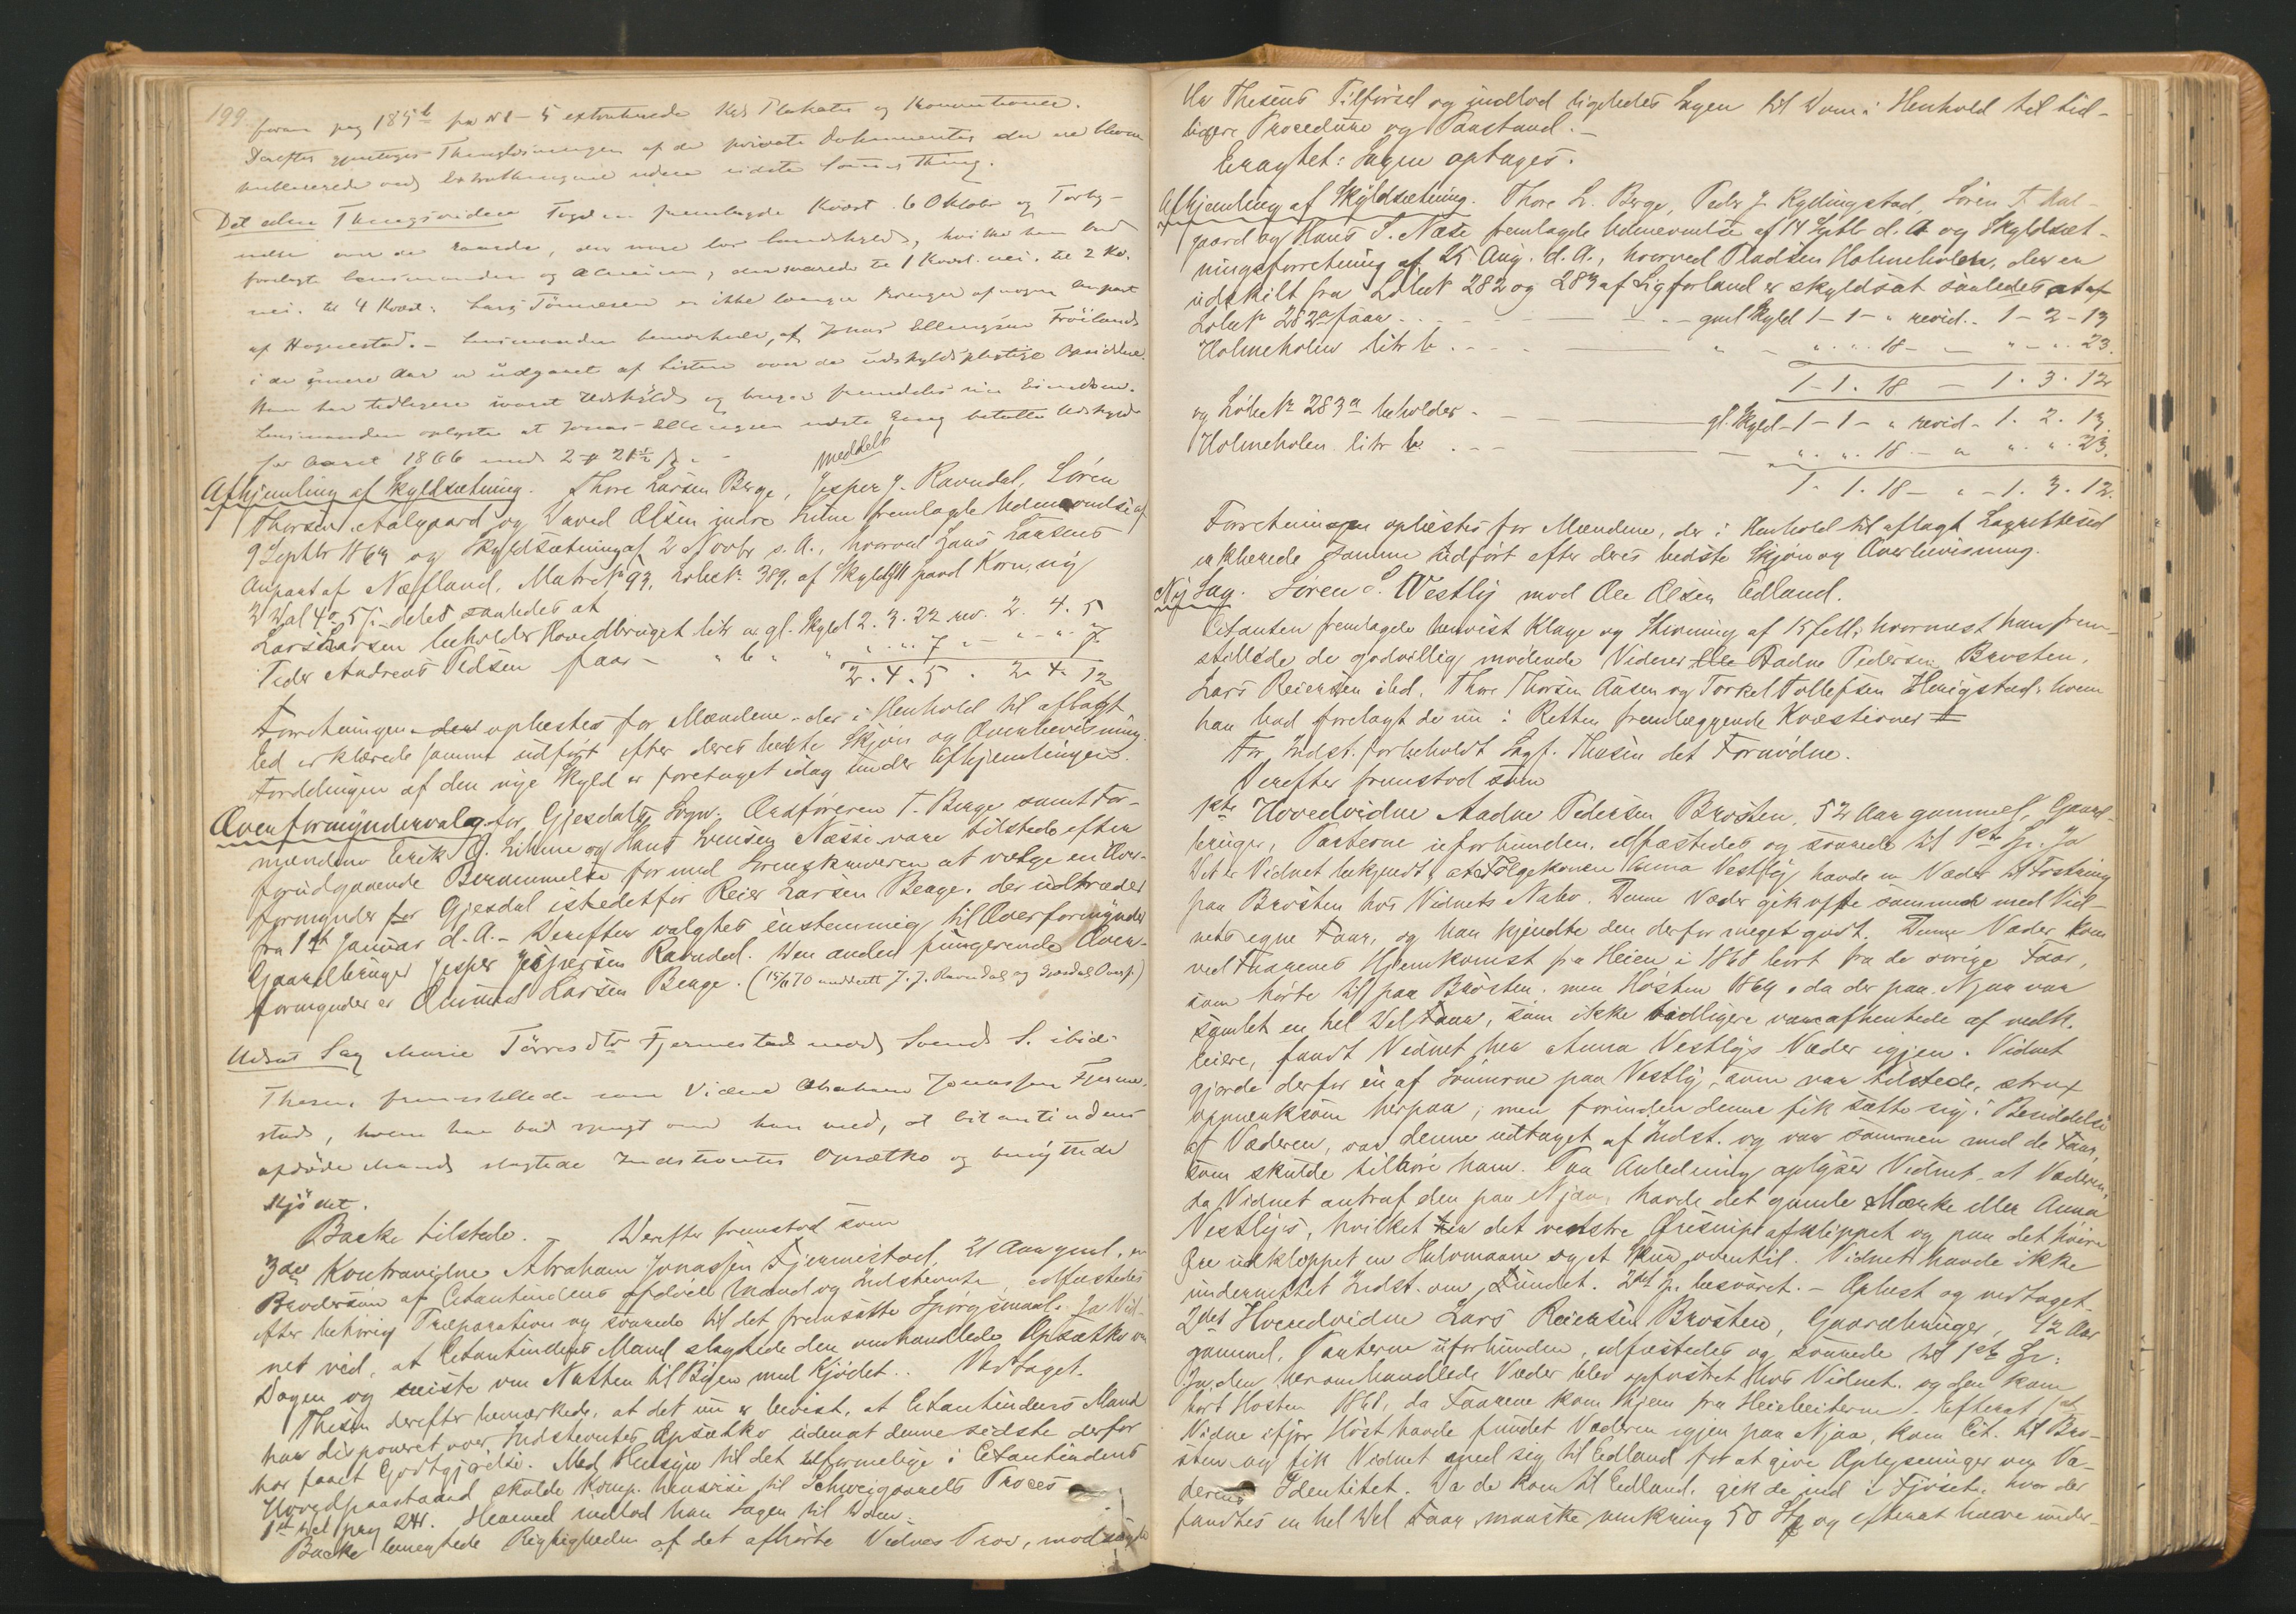 199
foran pag 185b fra N 1 - 5 extraherede Kgl Plakater og Konventioner.
Derefter gjentoges Thinglæsningen af de private Dokumenter der ere blevne
publicerede ved Extrathingene siden sidste Sommerthing.
Det edne Thingsvidne
forelagte Lensmanden og Almuen, der svarede til 1 Kvæst. nei. til 2 Kv.
nei. til 4 Kvæst: Lars Tønnesen er ikke længer Bruger af nogen Anpart
af Hognestad. - Lensmanden bemærkede, at Jonas Ellingsen Frøilands
i de senere Aar er udgaaet af Listen over de udskyldspligtige Opsiddere.
Han har tidligere svaret Udskyld og bruger fremdeles sin Eiendom.
Lensmanden oplyste at Jonas Ellingsen sidste Gang betalte Udskyld
for Aaret 1866 med 2 # 21½ ß. -
meddelt
Afhjemling af Skyldsætning. Thore Larsen Berge, Jesper J. Ravndal, Søren
Thorsen Aalgaard og Vared Olsen indre Lime fremlagde Udnævnelse af
9 Septbr 1869 og Skyldsætning af 2 Novbr s. A., hvorved Lars Larsens
Anpart af Næssland, Matr N 93, Løbe N. 389, af Skyld
2 Dal 4 o 5 ß. deles saaledes at
Lars Larsen beholder Hovedbruget litr a gl. Skyld 2. 3. 22 rev. 2. 4. 5
Peder Andreas Pedsen faar - " b " " " . " . 7 " - " - " . 7.
2. 4. 5 . 2. 4. 12
Forretningen oplæstes for Mændene, der i Henhold til aflagt
Ed erklærede samme udført efter deres bedste Skjøn og Overbevisning.
Fordelingen af den nye Skyld er foretaget idag under Afhjemlingen.
Overformyndervalg for Gjesdals Sogn. Ordføreren T. Berge samt For-
mændene Erik O. Limme og Hans Svensen Næsse vare tilstede efter
forudgaaende Berammelse for med Sorenskriveren at vælge en Over-
formynder for Gjesdal istedetfor Reier Larsen Berge, der udtræder
fra 1st Januar d. A. - Derefter valgtes enstemmig til Overformynder
Gaardbruger Jesper Jespersen Ravndal. Den anden fungerende Over-
formynder er Omund Larsen Berge. (15/1 70 meddelt J. J. Ravndal og Gjesdal Overf.)
Udsat Sag Marie Tørresdtr Fjermestad mod Svend S. ibid.
Thesen fremstillede som Vidne Abraham Jonassen Fjerme-
stad, hvem han bad spurgt om han ved, at Citantindens
afdøde Mand slagtede Indstevntes Opsætko og benyttede
Kjødet.
Backe tilstede. - Derefter fremstod som
3die Kontravidne Abraham Jonassen Fjermestad, 21 Aar gml, en
Brodersøn af Citantindens afdøde Mand og Indstevnte, edfæstedes
efter behørig Præparation og svarede til det fremsatte Spørgsmaal: Ja Vid-
net ved, at Citantindens Mand slagtede den omhandlede Opsætko om
Dagen og reiste om Natten til Byen med Kjødet. . Vedtaget.
Thesen derefter bemærkede, at det nu er bevist, at Citantindens Mand
har disponeret over Indstevntes Opsætko uden at denne sidste derfor
har faaet Godtgjørelse. Med Hensyn til det uformelige i Citantindens
Hovedpaastand skulde Komp. henvise til Schweigaards Proces
1st Del pag 241. Hermed indlod han Sagen til Dom.
Backe benegtede Rigtigheden af det afhørte Vidnes Prov, modsagde
Hr Thesens Tilførsel og indlod ligeledes Sagen til Dom i Henhold til tid-
ligere Procedure og Paastand. -
Eragtet: Sagen optages.
Afhjemling af Skyldsætning. Thore L. Berge, Peder J. Kydlingstad, Søren T. Aal-
gaard og Hans S. Næse fremlagde Udnævnelse af 14 Septb d. A og Skyldsæt-
ningsforretning af 25 Aug. d. A., hvorved Pladsen Holmeholen, der er
udskilt fra Løbe N 282 og 283 af Ligforland er skyldsat saaledes at af
Løbe N. 282a faar . . . - gml Skyld 1 - 1 - " revid. . 1 - 2 - 13
Holmeholen litr b . . . - " - " . " . 18 - " " - " . 23.
1 - 1 . 18 - 1 . 3 . 12
og Løbe N. 283a beholder . - gl. Skyld - 1 - 1 - " revid - 1. 2. 13.
Holmeholen litr b. . . - " . " . 18 - " " . " . 23.
1. 1. 18 - " - 1. 3. 12.
Forretningen oplæstes for Mændene, der i Henhold til aflagt Lagrettesed
erklærede samme udført efter deres bedste Skjøn og Overbevisning.
Ny Sag. Søren S. Westly mod Ole Olsen Edland.
Citanten fremlagde henvist Klage og Stevning af 15 felt; hvornæst han frem-
stillede de godvillig mødende Vidner Aadne Pedersen Brosten,
Lars Reiersen ibd, Thore Thorsen Aasen og Torkel Tollefsen Henigstad, hvem
han bad forelagt de nu i Retten fremlæggende Kvæstioner
For Indst. forbeholdt Sagf. Thesen det Fornødne.
Derefter fremstod som
1ste Hovedvidne Aadne Pedersen Brosten, 52 Aar gammel, Gaard-
bruger, Parterne uforbunden, edfæstedes og svarede til 1ste Sp. Ja
Det er Vidnet bekjendt, at Følgekonen Anna Vestly havde en Væder til Fostring
paa Brosten hos Vidnets Nabo. Denne Væder gik ofte sammen med Vid-
nets egne Faar, og han kjendte den derfor meget godt. Denne Væder kom
ved Faarenes Hjemkomst fra Heien i 1868 bort fra de øvrige Faar,
som hørte til paa Brosten, men Høsten 1869, da der paa Njaa var
samlet en hel Del Faar, som ikke tidligere vare afhentede af vedk.
Eiere, fandt Vidnet her Anna Vestlys Væder igjen. Vidnet
gjorde derfor en af Sønnerne paa Vestly, som var tilstede, strax
opmerksom herpaa; men forinden denne fik sætte sig i Besiddelse
af Væderen, var denne udtaget af Indst. og var sammen med de Faar,
som skulde tilhøre ham. Paa Anledning oplyser Vidnet, at Væderen,
da Vidnet antraf den paa Njaa, havde det gamle Mærke eller Anna
Vestlys, hvilket er det venstre Øresnip afklippet og paa det høire
Øre udkloppet en Halvmaane og et Skur oventil. Vidnet havde ikke
underrettet Indst. om Fundet. 2det Sp. besvaret. - Oplæst og vedtaget.
2det Hovedvidne Lars Reiersen Brosten, Gaardbruger, 42 Aar
gammel, Parterne uforbunden, edfæstedes og svarede til 1ste Sp:
Ja, den heromhandlede Væder blev opfostret hos Vidnet, og den kom
bort Høsten 1868, da Faarene kom hjem fra Heiebeiterne. Efterat
Vidne ifjor Høst havde fundet Væderen igjen paa Njaa, kom Cit. til Bro-
sten og fik Vidnet med sig til Edland for at give Oplysninger om Væ-
derens Identitet. Da de kom til Edland, gik de ind i Fjøset, hvor der
fandtes en hel Del Faar, maaske omkring 50 St, og efterat have under-